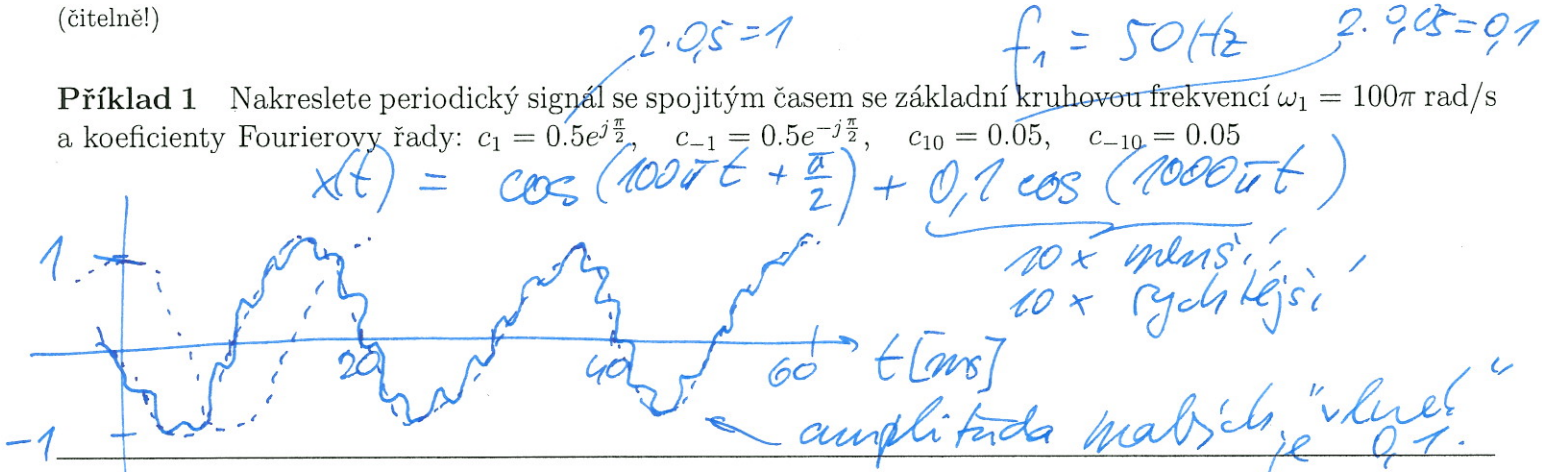 (čitelně!)
2 · 0,5 = 1
f₁ = 50 Hz
2 · 0,05 = 0,1
Příklad 1 Nakreslete periodický signál se spojitým časem se základní kruhovou frekvencí ω₁ = 100π rad/s
a koeficienty Fourierovy řady: c₁ = 0.5e^{jπ/2}, c₋₁ = 0.5e^{−jπ/2}, c₁₀ = 0.05, c₋₁₀ = 0.05
x(t) = cos(100πt + π/2) + 0,1 cos(1000πt)
10 x menší,
10 x rychlejší
1
20
40
60
t [ms]
-1
amplituda malých "vlnek"
je 0,1.